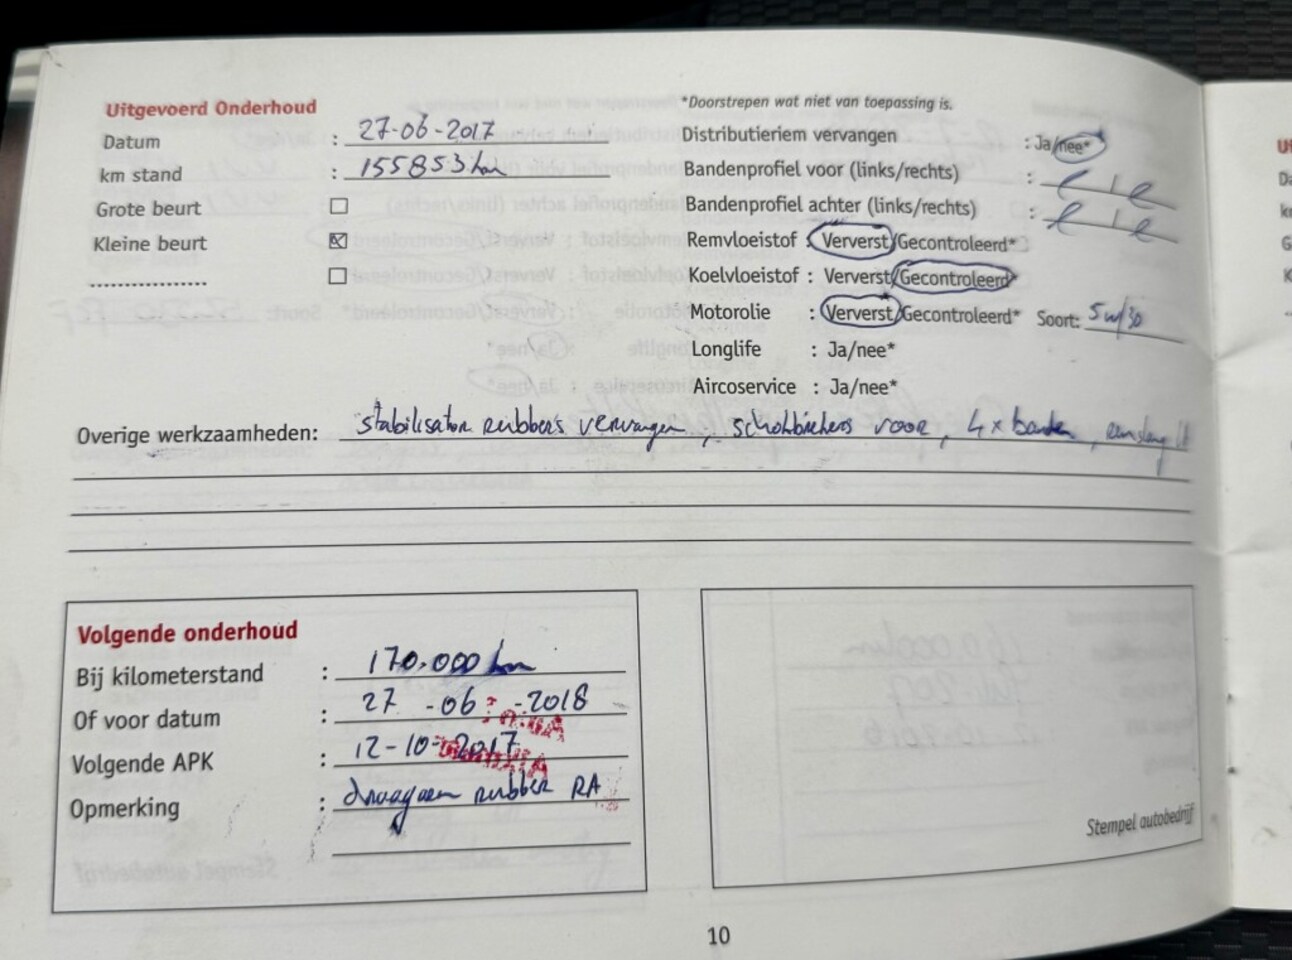 Uitgevoerd Onderhoud
*Doorstrepen wat niet van toepassing is.
Datum : 27-06-2017
km stand : 155853 km
Grote beurt
Kleine beurt
Distributieriem vervangen : Ja/nee*
Bandenprofiel voor (links/rechts) :
Bandenprofiel achter (links/rechts) :
Remvloeistof : Ververst/Gecontroleerd*
Koelvloeistof : Ververst/Gecontroleerd*
Motorolie : Ververst/Gecontroleerd* Soort: 5w/30
Longlife : Ja/nee*
Aircoservice : Ja/nee*
Overige werkzaamheden: stabilisator rubbers vervangen, schokbrekers voor, 4x banden,
Volgende onderhoud
Bij kilometerstand : 170.000 km
Of voor datum : 27-06-2018
Volgende APK : 12-10-2017
Opmerking : draagarm rubber RA
Stempel autobedrijf
10